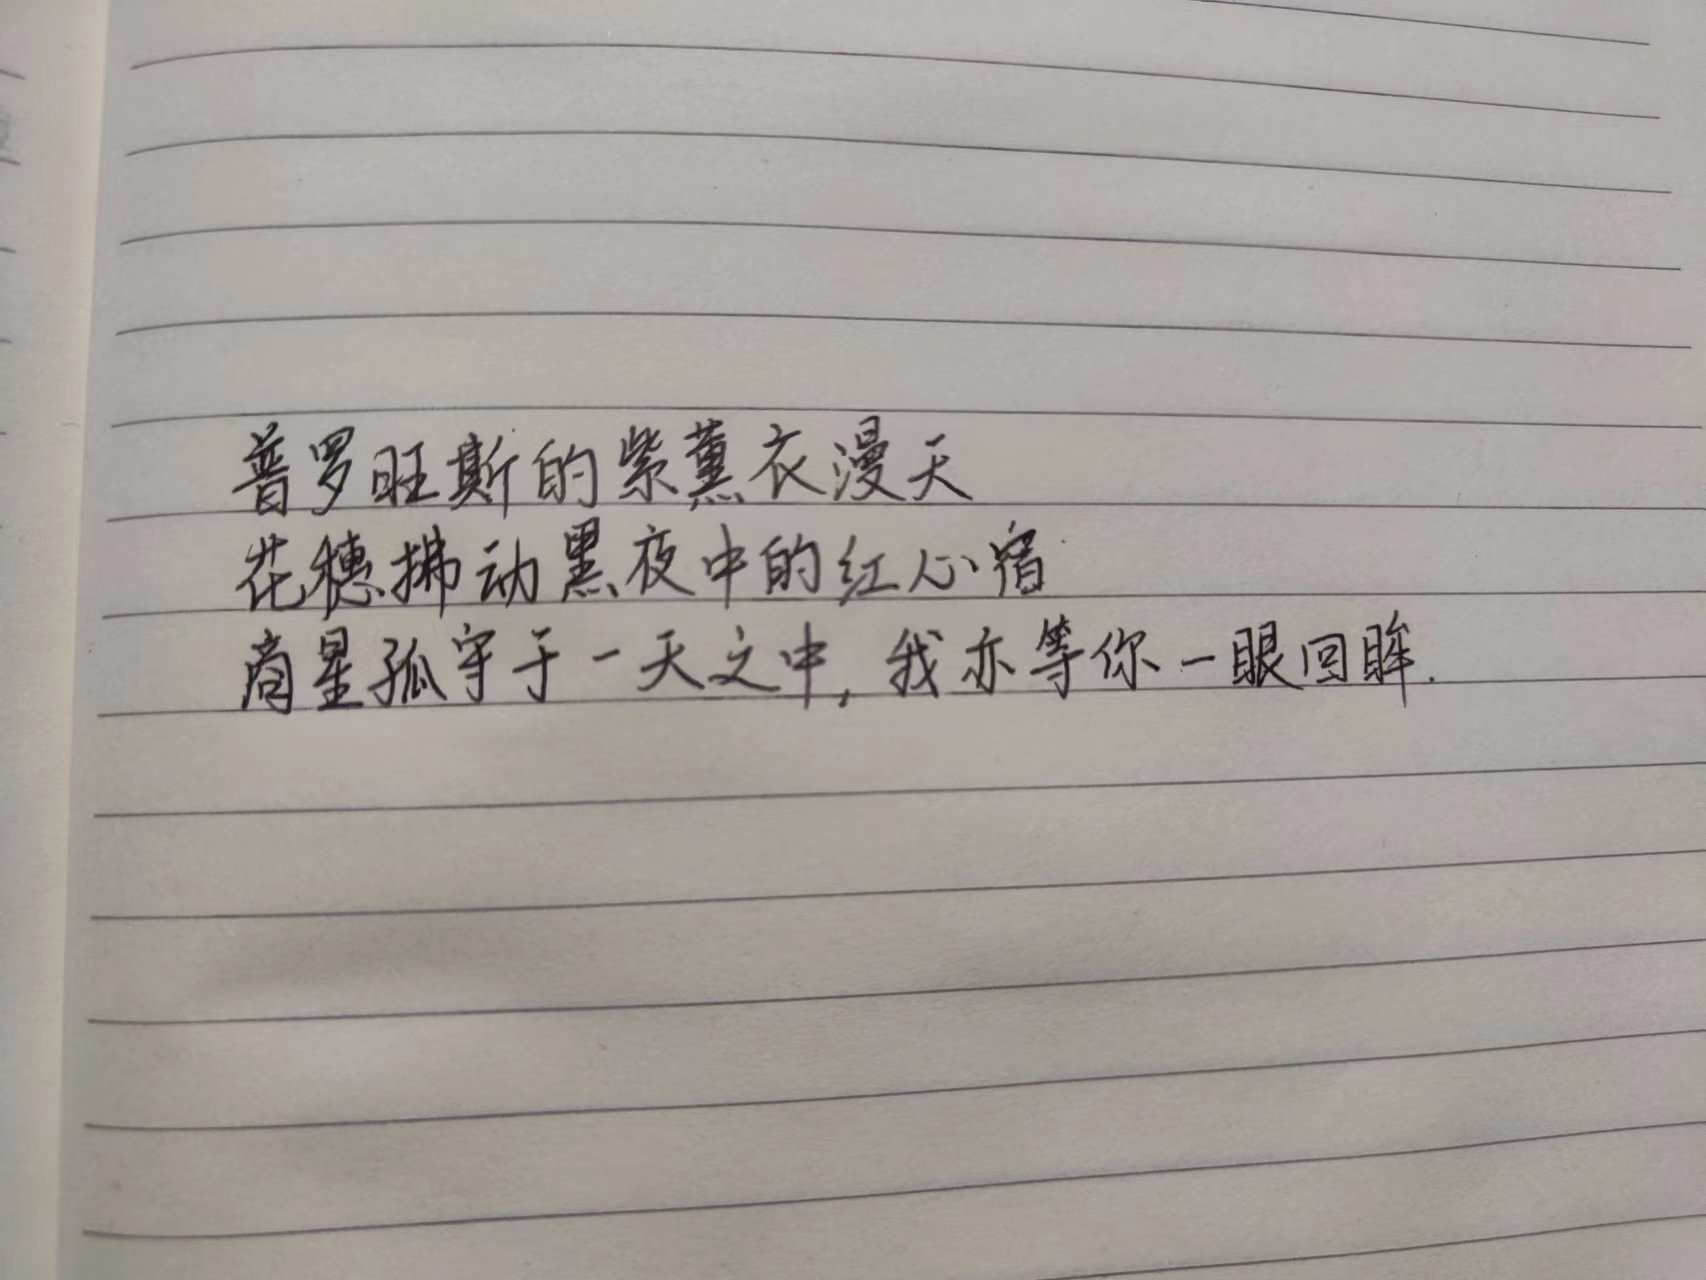 普罗旺斯的紫薰衣漫天
花穗拂动黑夜中的红心宿
商星孤守于一天之中,我亦等你一眼回眸.